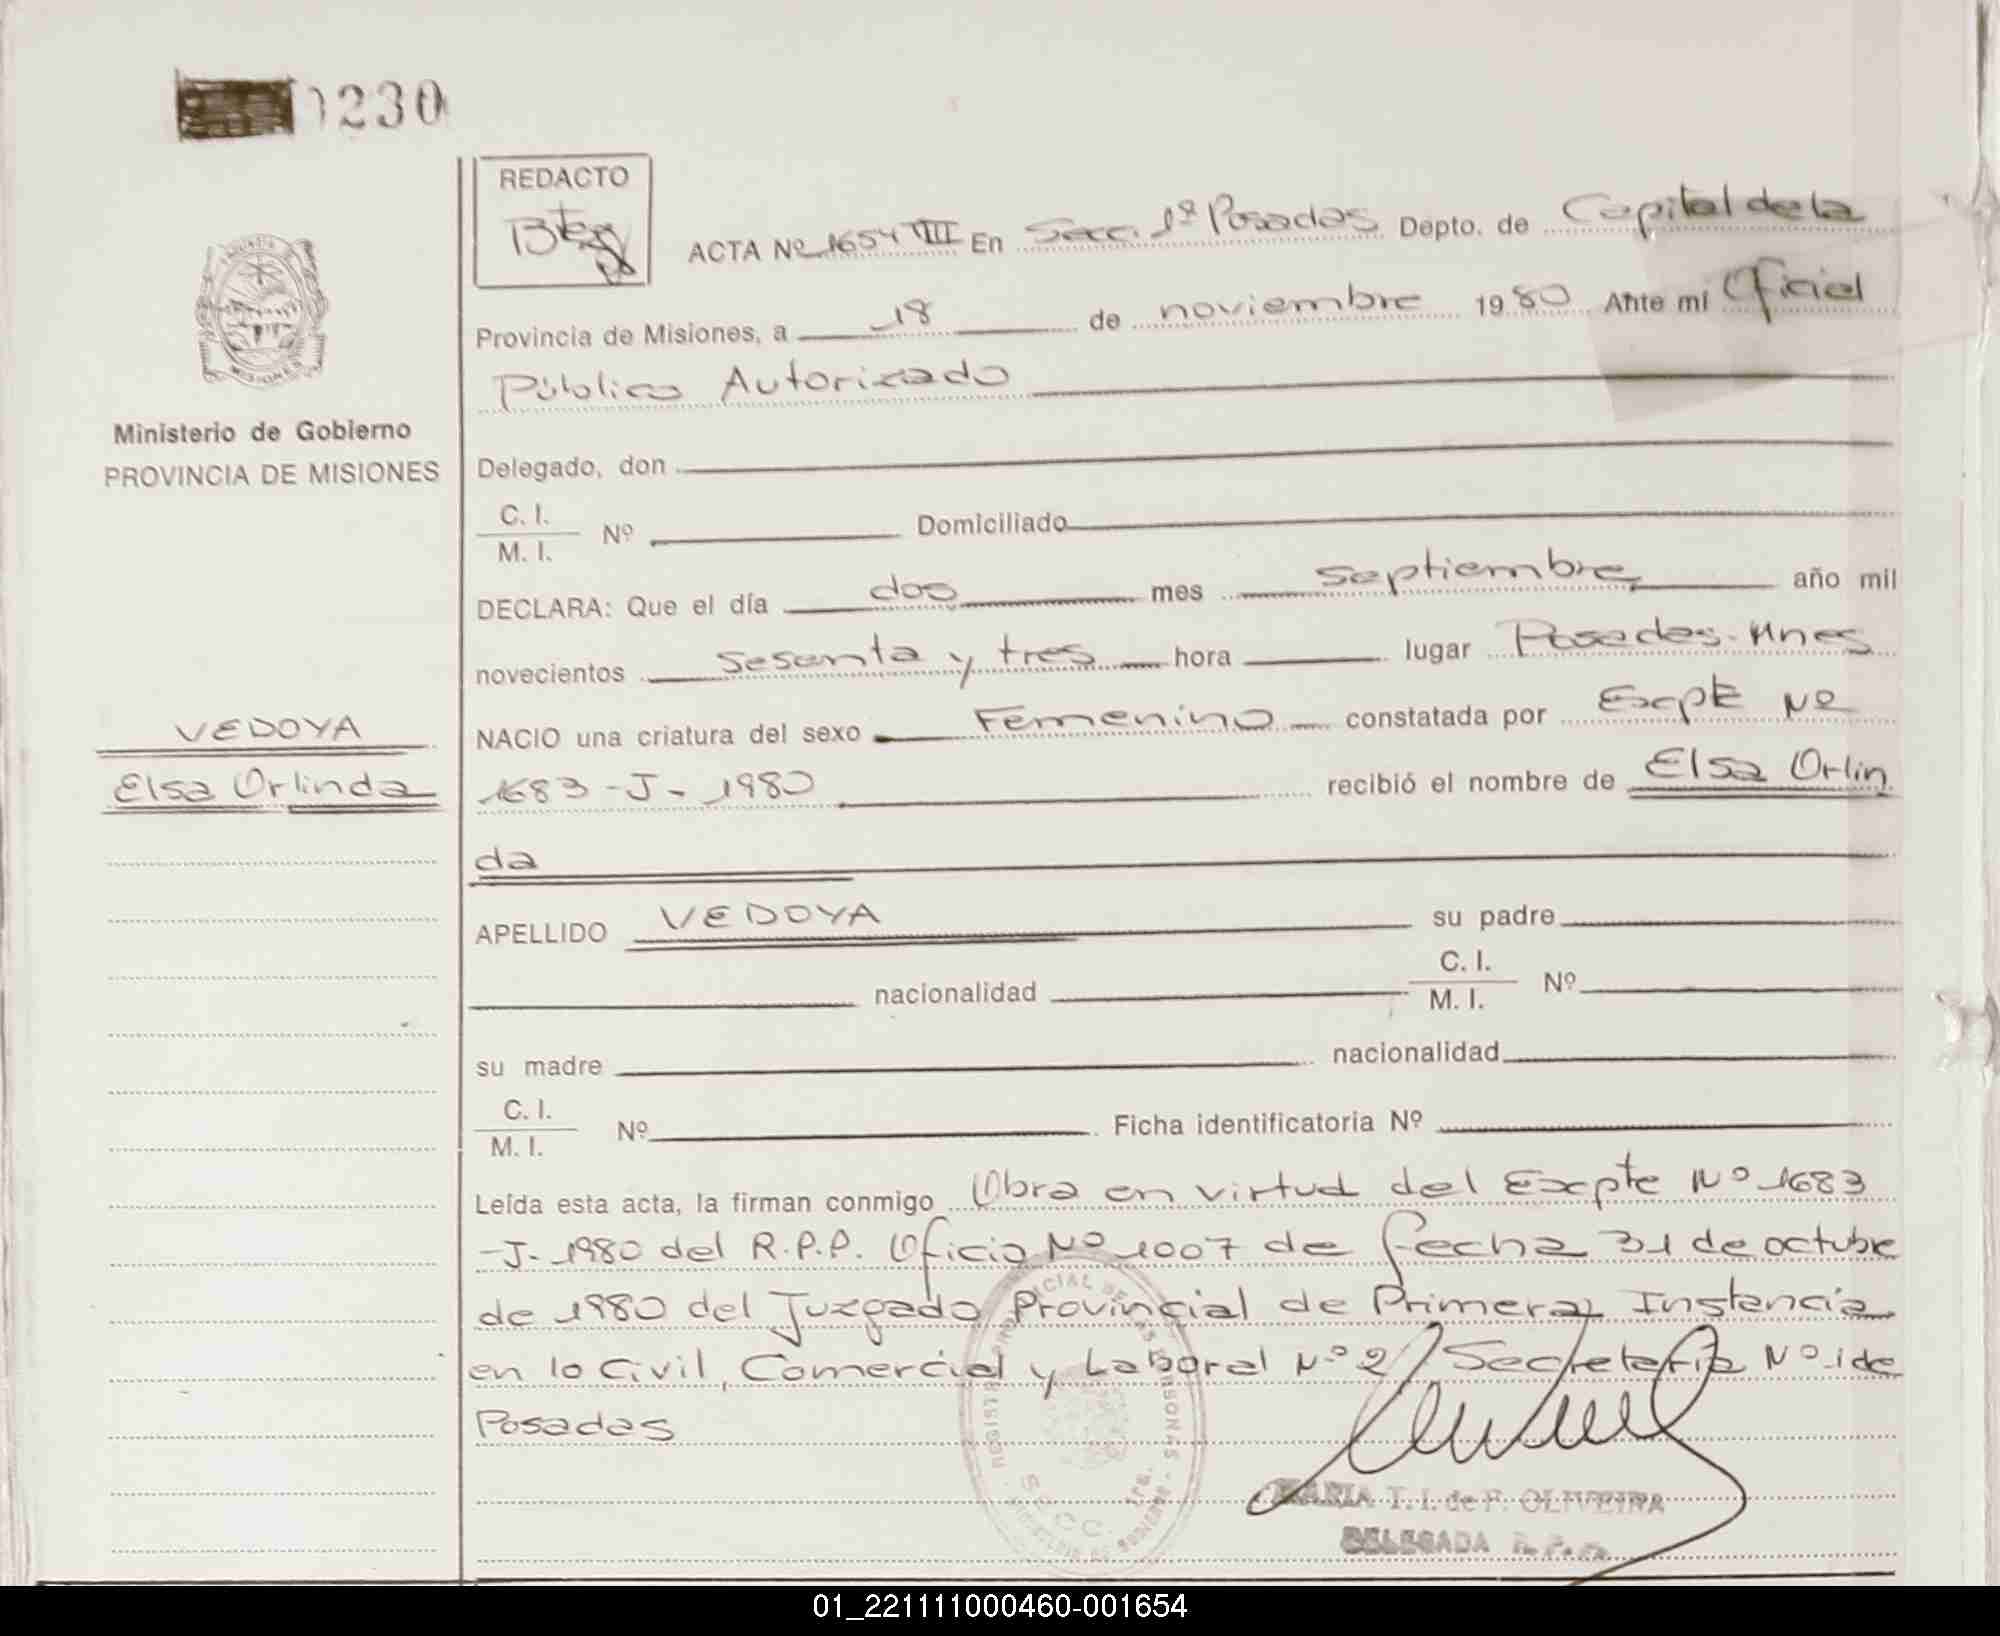 230
REDACTO
ACTA Nº 1654 VIII En Secc. 1º Posadas Depto. de Capital de la
Provincia de Misiones, a 18 de noviembre 1980 Ante mí Oficial
Público Autorizado
Ministerio de Gobierno
PROVINCIA DE MISIONES
Delegado, don
C. I.
M. I. Nº Domiciliado
DECLARA: Que el día dos mes septiembre año mil
novecientos sesenta y tres hora lugar Posadas-Mnes
VEDOYA
Elsa Orlinda
NACIO una criatura del sexo Femenino constatada por Excpte Nº
1683-J-1980 recibió el nombre de Elsa Orlin
da
APELLIDO VEDOYA su padre
nacionalidad C. I.
M. I. Nº
su madre nacionalidad
C. I.
M. I. Nº Ficha identificatoria Nº
Leída esta acta, la firman conmigo Obra en virtud del Excpte Nº 1683
-J-1980 del R.P.P. Oficio Nº 1007 de fecha 31 de octubre
de 1980 del Juzgado Provincial de Primera Instancia
en lo Civil, Comercial y Laboral Nº 2, Secretaría Nº 1 de
Posadas
MARIA T. I. de F. OLIVEIRA
DELEGADA R. P. P.
01_221111000460-001654